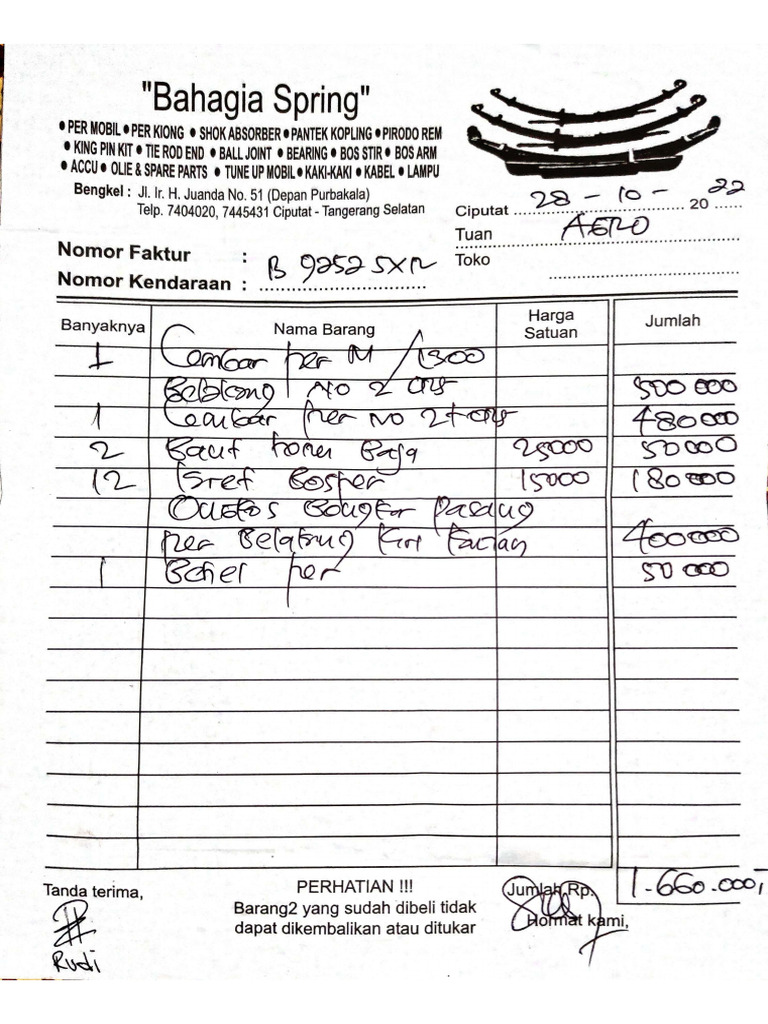 "Bahagia Spring"
● PER MOBIL ● PER KIONG ● SHOK ABSORBER ● PANTEK KOPLING ● PIRODO REM
● KING PIN KIT ● TIE ROD END ● BALL JOINT ● BEARING ● BOS STIR ● BOS ARM
● ACCU ● OLIE & SPARE PARTS ● TUNE UP MOBIL ● KAKI-KAKI ● KABEL ● LAMPU
Bengkel : Jl. Ir. H. Juanda No. 51 (Depan Purbakala)
Telp. 7404020, 7445431 Ciputat - Tangerang Selatan
Ciputat 28 - 10 - 2022
Tuan AERO
Toko
Nomor Faktur :
Nomor Kendaraan : B 9252 SXR
Banyaknya Nama Barang Harga Satuan Jumlah
1 Lembar per M / 1300
No 2 500 000
1 Lembar per No 2 480000
2 Baut Baja 25000 50000
12 15000 180000
Ongkos Bongkar Pasang
per Belakang Kiri 400000
1 Behel per 50 000
Jumlah Rp. 1.660.000,-
Tanda terima,
PERHATIAN !!!
Barang2 yang sudah dibeli tidak
dapat dikembalikan atau ditukar
Hormat kami,
Rudi